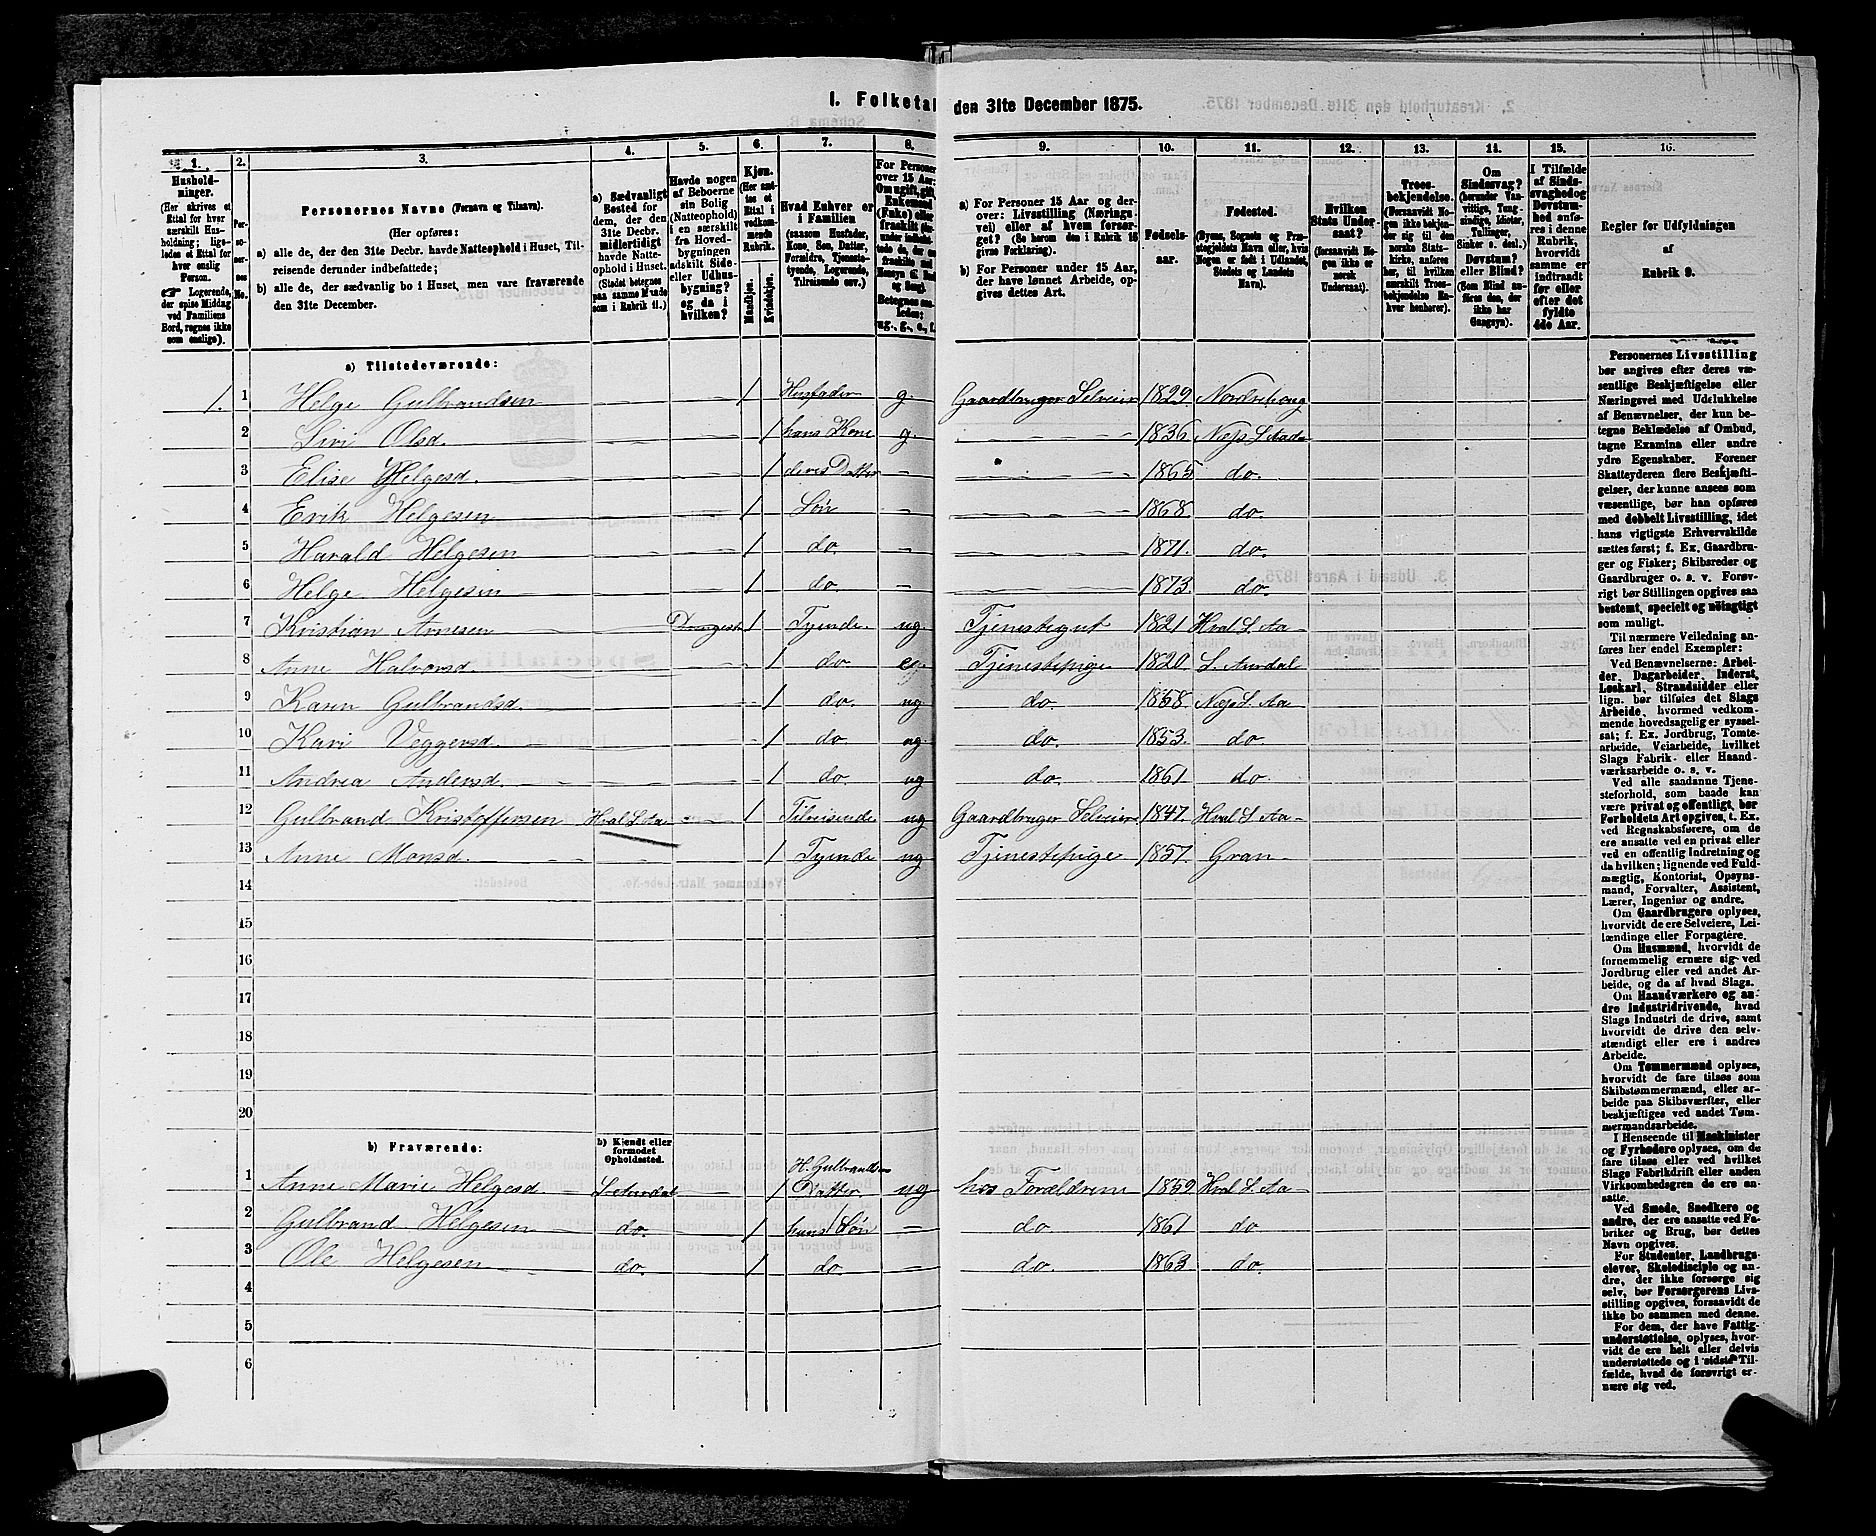 I. Folketal den 31te December 1875.
1. 2. 3. 4. 5. 6. 7. 8. 9. 10. 11. 12. 13. 14. 15. 16.
Husholdninger.
(Her skrives et
Ettal for hver
særskilt Husholdning;
ligeledes et Ettal for
hver enslig
Person.
☞ Logerende,
der spise Middag
ved Familiens
Bord, regnes ikke
som enslige).
Personernes No.
Personernes Navne (Fornavn og Tilnavn).
(Her opføres:
a) alle de, der den 31te Decbr. havde Natteophold i Huset, Tilreisende derunder indbefattede;
b) alle de, der sædvanlig bo i Huset, men vare fraværende
den 31te December.
a) Sædvanligt
Bosted for
dem, der den
31te Decbr.
midlertidigt
havde Natteophold i Huset.
(Stedet betegnes
paa samme Maade
som i Rubrik 11.)
Havde nogen
af Beboerne
sin Bolig
(Natteophold)
i en særskilt
fra Hovedbygningen
adskilt Side-
eller Udhusbygning?
og da i
hvilken?
Kjøn.
(Her sættes et
Ettal i
vedkommende
Rubrik.
Mandkjøn. Kvindekjøn.
Hvad Enhver er
i Familien
(saasom Husfader,
Kone, Søn, Datter,
Forældre, Tjenestetyende, Logerende,
Tilreisende osv.)
For Personer
over 15 Aar:
Om ugift, gift,
Enkemand
(Enke) eller
fraskilt
Betegnes saaledes:
ug., g., e., f.
a) For Personer 15 Aar og derover: Livsstilling (Næringsvei) eller af hvem forsørget? (Se herom den i Rubrik 16
givne Forklaring).
b) For Personer under 15 Aar,
der have lønnet Arbeide, opgives dettes Art.
Fødselsaar.
Fødested.
(Byens, Sognets og Præstegjeldets Navn eller, hvis
Nogen er født i Udlandet,
Stedets og Landets
Navn).
Hvilken
Stats Undersaat?
(forsaavidt Nogen ikke er
norsk
Undersaat).
Troesbekjendelse.
(Forsaavidt Nogen ikke bekjender sig til den
norske Statskirke, anføres
her, til hvilken
særskilt Troesbekjendelse Enhver henhører).
Om
Sindssvag?
(herunder Vanvittige, Tungsindige, Idioter,
Tullinger,
Sinker o. desl.)
Døvstum?
eller Blind?
(Som Blind anføres den, der
ikke har
Gangsyn).
I Tilfælde
af Sindssvaghed og
Døvstumhed anføres i denne
Rubrik,
hvorvidt
samme er
indtraadt
før eller
efter det
fyldte
4de Aar.
Regler for Udfyldningen
af
Rubrik 9.
a) Tilstedeværende:
1. 1 Helge Gulbrandsen 1 Husfader g. Gaardbruger Selveier 1829. Nordrehoug
2 Siri Olsd. 1 hans Kone g. 1836. Næs S. Aadl
3 Elise Helgesd. 1 deres Datter — 1865. do.
4 Erik Helgesen 1 Søn — 1868. do.
5 Harald Helgesen 1 do. — 1871. do.
6 Helge Helgesen 1 do. — 1873. do.
7 Kristian Arnesen 1 Tyende. ug. Tjenestegut 1821 Hval S. Aa
8 Anne Halvorsd. 1 do. Tjenestepige 1820. S. Aurdal
9 Karen Gulbrandsd. 1 do. ug. do. 1858. Næs S. Aa
10 Kari Veggersd. 1 do. ug. do. 1853. do.
11 Andrea Andersd. 1 do. ug do. 1861 do
12 Gulbrand Kristoffersen Hval S. Aa 1 Tilreisende ug Gaardbruger Selveier 1847. Hval S. Aa
13 Anne Monsd. 1 Tyende ug Tjenestepige 1857. Gran
14
15
16
17
18
19
20
b) Fraværende: b) Kjendt eller formodet Opholdssted.
1 Anne Marie Helgesd. S. Aurdal 1 H. Gulbrandsen Datter ug hos Forældrene 1859 Hval S. Aa
2 Gulbrand Helgesen do. 1 hans Søn — do 1861 do
3 Ole Helgesen do. 1 do do. 1863 do.
4
5
6
Personernes Livsstilling
bør angives efter deres væsentlige Beskjæftigelse eller
Næringsvei med Udelukkelse
af Benævnelser, der kun betegne Beklædelse af Ombud,
tagne Examina eller andre
ydre Egenskaber. Forener
Skatteyderen flere Beskjæftigelser, der kunne ansees som
væsentlige, bør han opføres
med dobbelt Livsstilling, idet
hans vigtigste Erhvervskilde
sættes først; f. Ex. Gaardbruger og Fisker; Skibsreder og
Gaardbruger o. s. v. Forøvrigt bør Stillingen opgives saa
bestemt, specielt og nøiagtigt
som muligt.
Til nærmere Veiledning anføres her endel Exempler:
Ved Benævnelserne: Arbeider, Dagarbeider, Inderst,
Løskarl, Strandsidder eller
lign. bør tilføies det Slags
Arbeide, hvormed vedkommende hovedsagelig er sysselsat; f. Ex. Jordbrug, Tomtearbeide, Veiarbeide, hvilket
Slags Fabrik- eller Haandværksarbeide o. s. v.
Ved alle saadanne Tjenesteforhold, som baade kan
være privat og offentligt, bør
Forholdets Art opgives, t. Ex.
ved Regnskabsførere, om de
ere ansatte ved en privat eller
ved en offentlig Indretning og
da hvilken; lignende ved Fuldmægtig, Kontorist, Opsynsmand, Forvalter, Assistent,
Lærer, Ingeniør og andre.
Om Gaardbrugere oplyses,
hvorvidt de ere Selveiere, Leilændinge eller Forpagtere.
Om Husmænd, hvorvidt de
fornemmelig ernære sig ved
Jordbrug eller ved andet Arbeide, og da af hvad Slags.
Om Haandværkere og andre Industridrivende, hvad
Slags Industri de drive, samt
hvorvidt de drive den selvstændigt eller ere i andres
Arbeide.
Om Tømmermænd oplyses,
hvorvidt de fare tilsøs som
Skibstømmermænd, eller arbeide paa Skibsværfter, eller
beskjæftiges ved andet Tømmermandsarbeide.
I Henseende til Maskinister
og Fyrbødere oplyses, om de
fare tilsøs eller ved hvilket
Slags Fabrikdrift eller anden
Virksomhedsgren de ere ansatte.
Ved Smede, Snedkere og
andre, der ere ansatte ved Fabriker og Brug, bør dettes
Navn opgives.
For Studenter, Landbrugselever, Skoledisciple og andre, der ikke forsørge sig
selv, bør Forsørgerens Livsstilling opgives, forsaavidt de
ikke bo sammen med denne.
For dem, der have Fattigunderstøttelse, oplyses, hvorvidt de ere helt eller delvis
understøttede og i sidste Tilfælde, hvad de forøvrigt ernære sig ved.